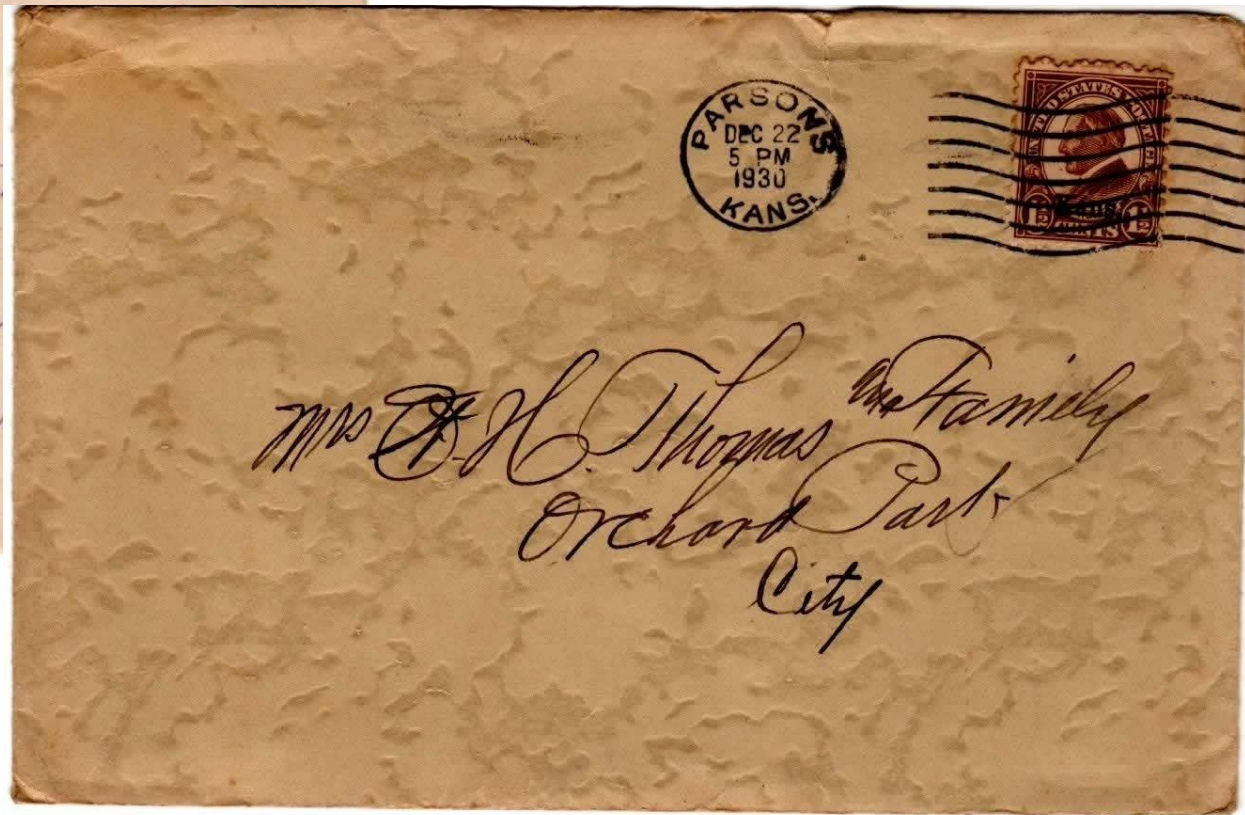 PARSONS
DEC 22
5 PM
1930
KANS.
UNITED STATES POSTAGE
Kans.
1½ CENTS 1½
Mrs H. Thomas and Family
Orchard Park
City